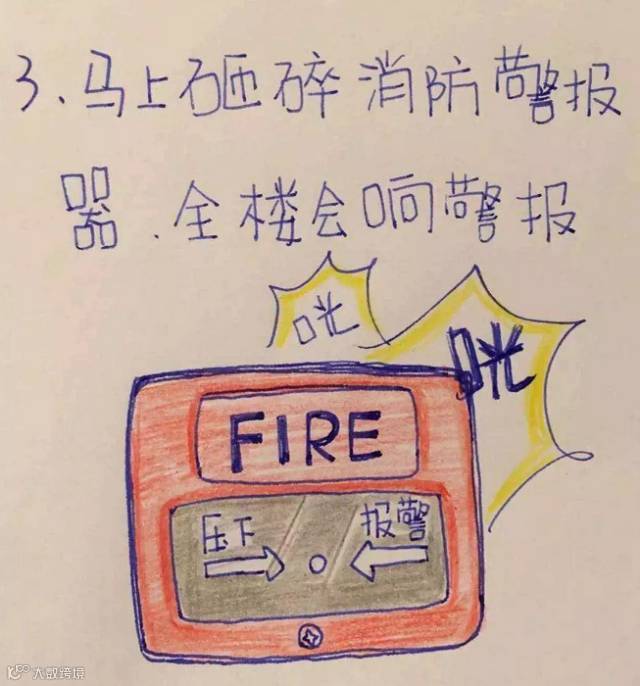 3、马上砸碎消防警报
器、全楼会响警报
咣
咣
FIRE
压下 报警
大数跨境